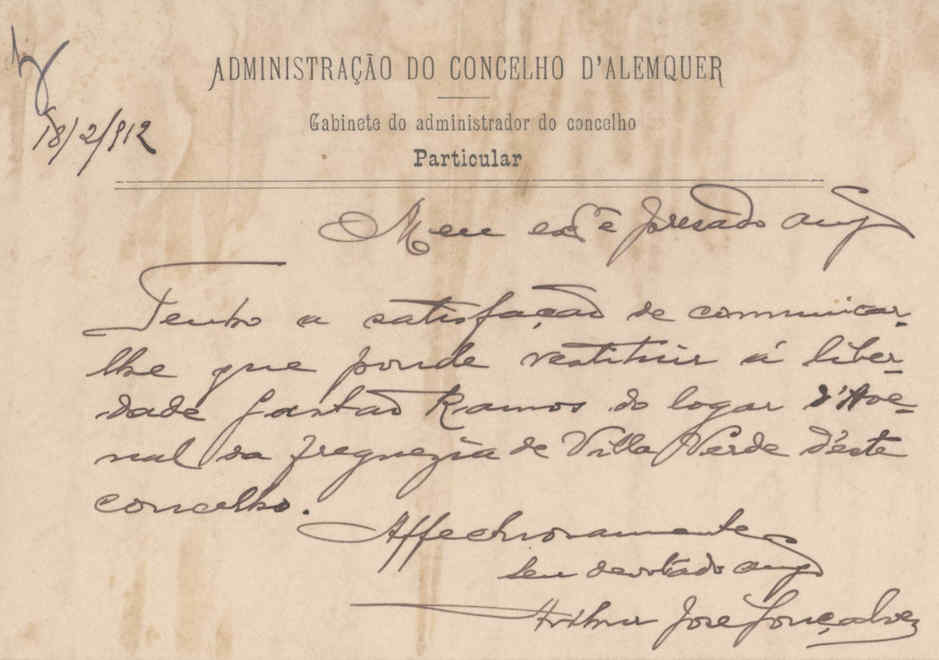 ADMINISTRAÇÃO DO CONCELHO D'ALEMQUER
Gabinete do administrador do concelho
Particular
18/2/912
Meu exº e presado amº
Tenho a satisfação de communicar-
lhe que poude restituir á liber-
dade Gastão Ramos do logar d'Ave-
nal da freguezia de Villa Verde d'éste
concelho.
Affectuosamente
seu devotado amº
Arthur José Gonçalves